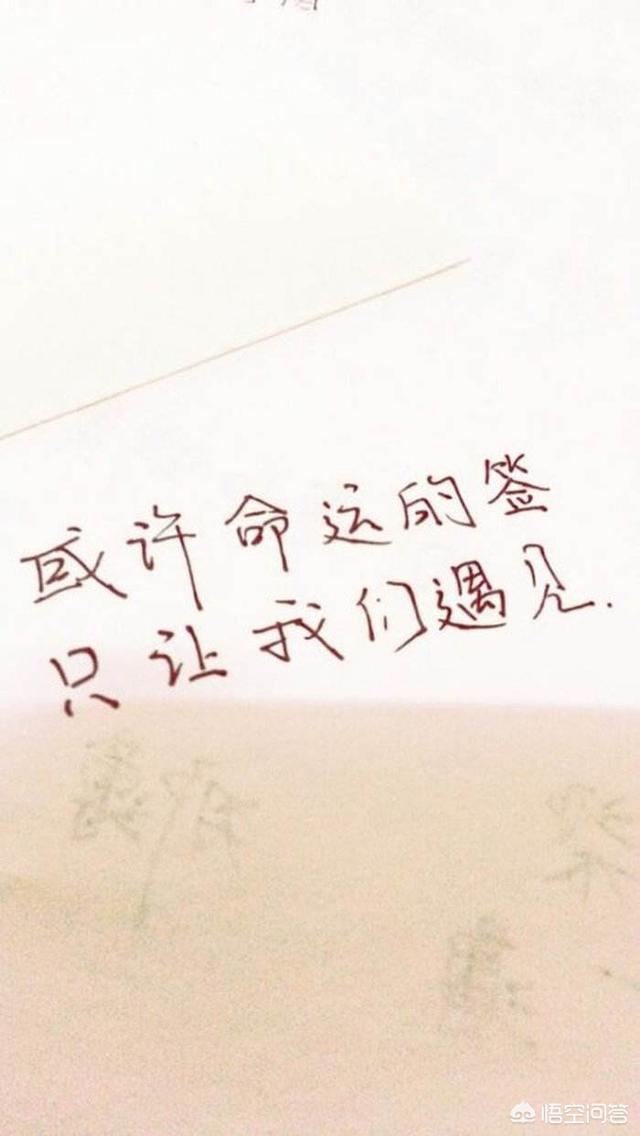 或许命运的签
只让我们遇见.
悟空问答